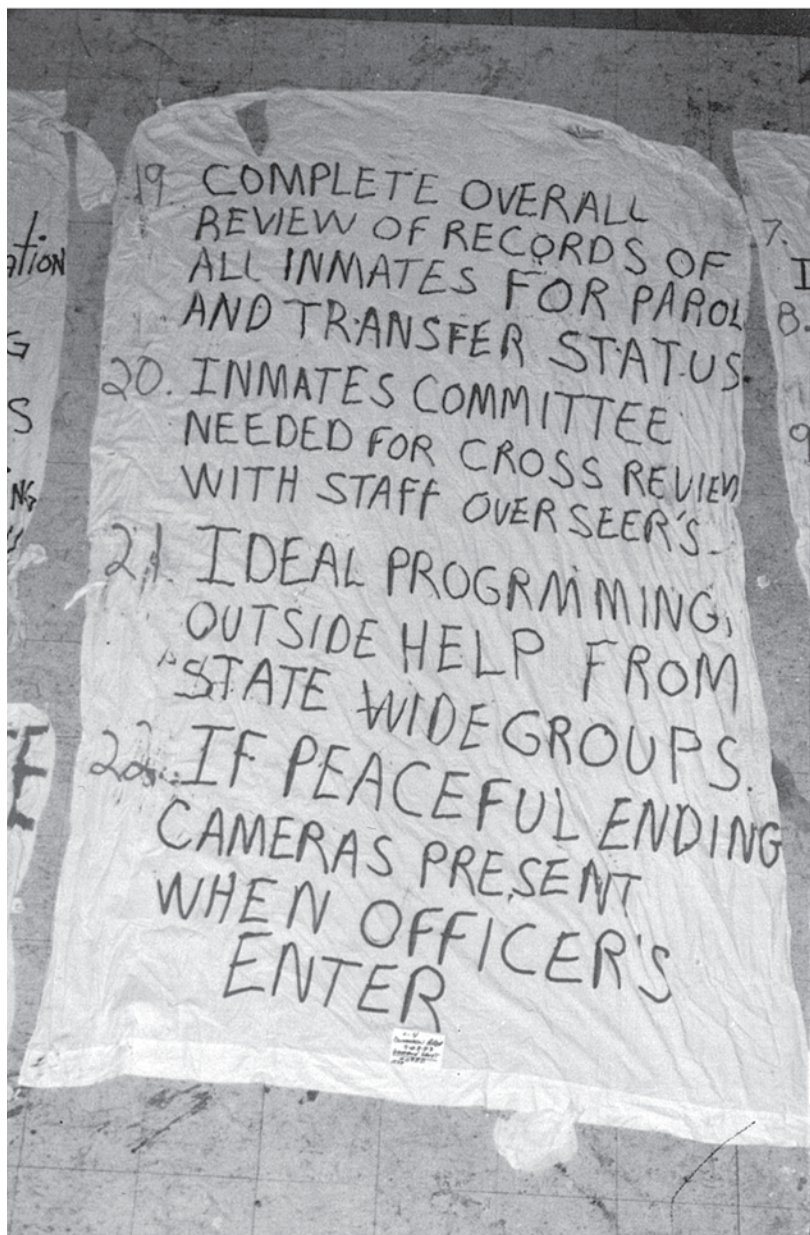 ation
G
S
NG
19. COMPLETE OVERALL
REVIEW OF RECORDS OF
ALL INMATES FOR PAROL
AND TRANSFER STATUS
20. INMATES COMMITTEE
NEEDED FOR CROSS REVIEW
WITH STAFF OVERSEER'S
21. IDEAL PROGRMMING,
OUTSIDE HELP FROM
STATE WIDE GROUPS.
22. IF PEACEFUL ENDING
CAMERAS PRESENT
WHEN OFFICER'S
ENTER
7.
I
8.
9